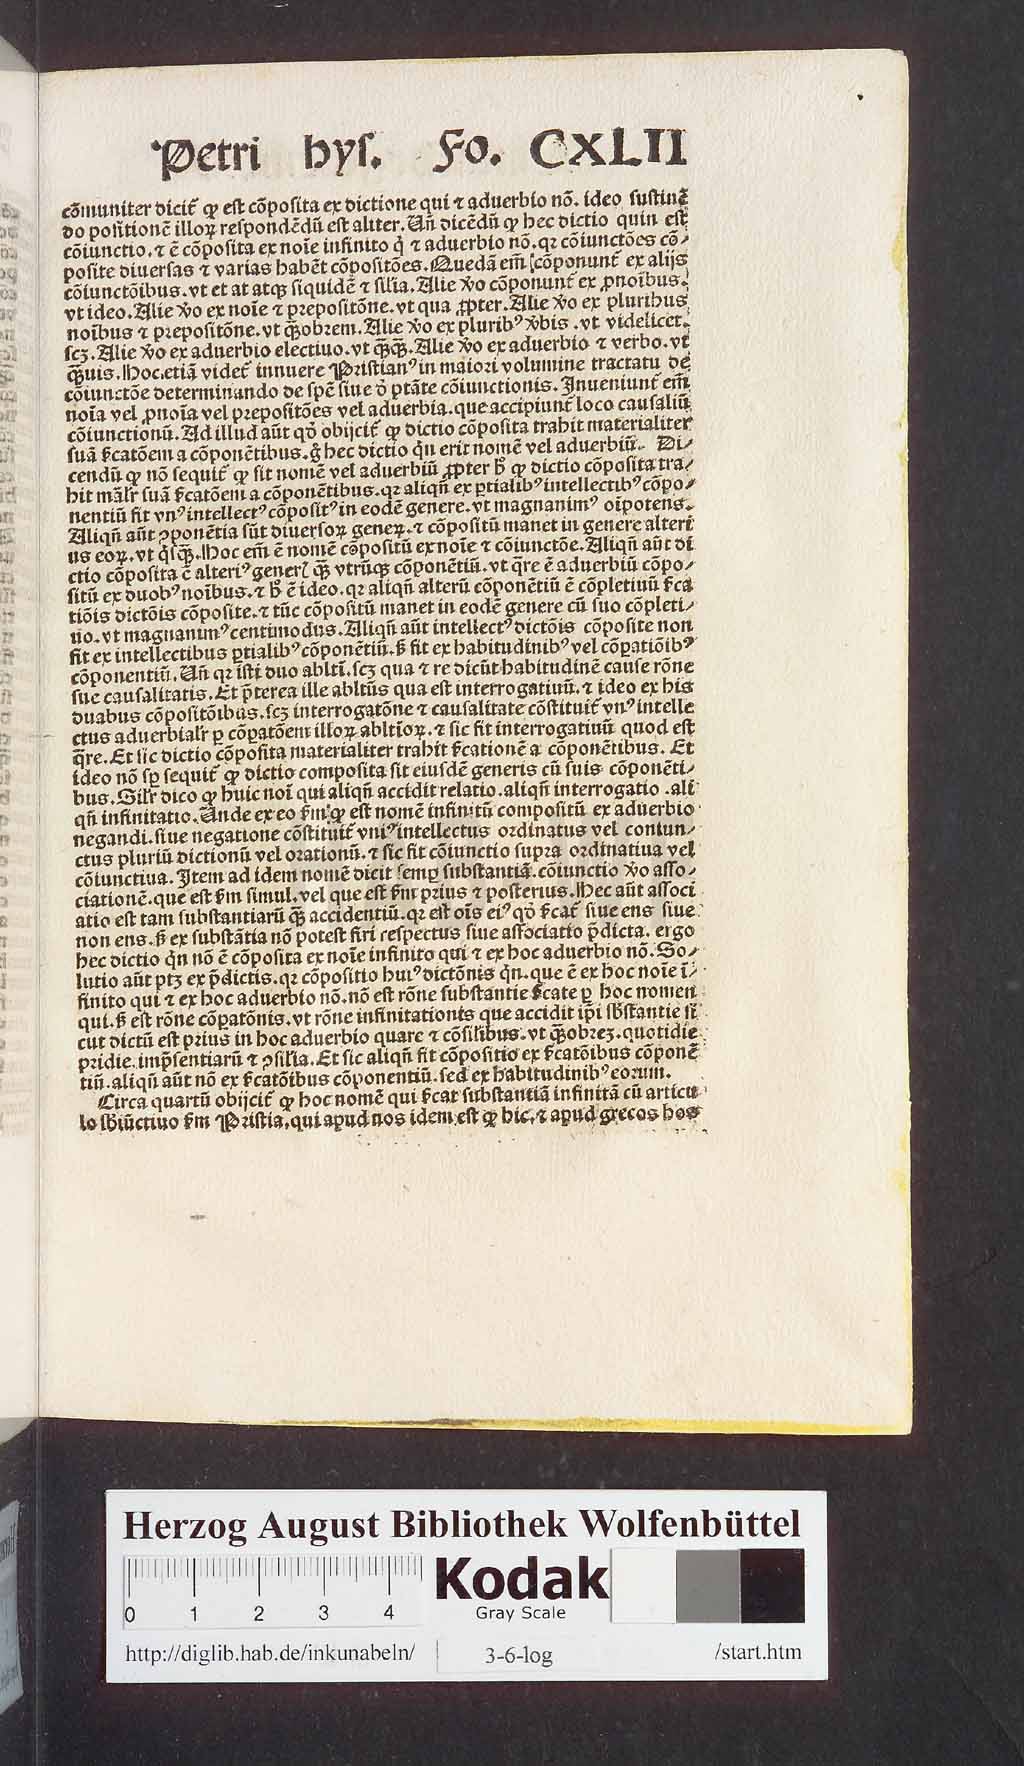 Petri hys. Fo. CXLII
cōmuniter dicit̃ ꝙ est cōposita ex dictione qui ⁊ aduerbio nō. ideo sustinē
do positionē illoꝝ respondēdū est aliter. Uñ dicēdū ꝙ hec dictio quin est
cōiunctio. ⁊ ē cōposita ex noīe infinito q̇ ⁊ aduerbio nō. qꝛ cōiunctōes cō⸗
posite diuersas ⁊ varias habēt cōpositōes. Quedā em̄ cōponunt̃ ex alijs
cōiunctōibus. vt et at atqꝫ siquidē ⁊ silia. Alie v̄o cōponunt̃ ex ꝓnoībus.
vt ideo. Alie v̄o ex noīe ⁊ prepositōne. vt qua ꝓpter. Alie v̄o ex pluribus
noībus ⁊ prepositōne. vt q̄obrem. Alie v̄o ex pluribꝰ v̄bis .vt videlicet.
scꝫ. Alie v̄o ex aduerbio electiuo. vt q̄q̄. Alie v̄o ex aduerbio ⁊ verbo. vt
q̄uis. Hoc.etiā videt̃ innuere Pristianꝰ in maiori volumine tractatu de
cōiunctōe determinando de spē siue d̓ ptāte cōiunctionis. Inueniunt̃ em̄
noīa vel ꝓnoīa vel prepositōes vel aduerbia. que accipiunt̃ loco causaliū
cōiunctionū. Ad illud aūt qd̓ obijcit̃ ꝙ dictio cōposita trahit materialiter
suā ſcatōem a cōponētibus. g̊ hec dictio q̇n erit nomē vel aduerbiū. Di⸗
cendū ꝙ nō sequit̃ ꝙ sit nomē vel aduerbiū ꝓpter h̓ ꝙ dictio cōposita tra⸗
hit māl̓r suā ſcatōem a cōponētibus. qꝛ aliqn̄ ex ꝑtialibꝰ intellectibꝰ cōpo⸗
nentiū fit vnꝰ intellectꝰ cōpositꝰ in eodē genere. vt magnanimꝰ oīpotens.
Aliqn̄ aūt ꝯponētia sūt diuersoꝝ geneꝝ. ⁊ cōpositū manet in genere alteri
us eoꝝ. vt q̇sq̄. Hoc em̄ ē nomē cōpositū ex noīe ⁊ cōiunctōe. Aliqn̄ aūt di
ctio cōposita ē alteriꝰ gener̉ q̄ vtrūqꝫ cōponētiū. vt q̄re ē aduerbiū cōpo⸗
sitū ex duobꝰ noībus. ⁊ h̓ ē ideo. qꝛ aliqn̄ alterū cōponētiū ē cōpletiuū ſca
tiōis dictōis cōposite. ⁊ tūc cōpositū manet in eodē genere cū suo cōpleti⸗
uo. vt magnanimꝰ centimodus. Aliqn̄ aūt intellectꝰ dictōis cōposite non
fit ex intellectibus ꝑtialibꝰ cōponētiū. ſꝫ fit ex habitudinibꝰ vel cōꝑatiōibꝰ
cōponentiū. Uñ qꝛ isti duo ablti. scꝫ qua ⁊ re dicūt habitudinē cause rōne
sue causalitatis. Et p̄terea ille abltūs qua est interrogatiuū. ⁊ ideo ex his
duabus cōpositōibus. scꝫ interrogatōne ⁊ causalitate cōstituit̃ vnꝰ intelle
ctus aduerbial̓r ꝑ cōpatōem illoꝝ abltioꝝ. ⁊ sic fit interrogatiuū quod est
q̄re. Et sic dictio cōposita materialiter trahit ſcationē a cōponētibus. Et
ideo nō sꝑ sequit̃ ꝙ dictio composita sit eiusdē generis cū suis cōponēti⸗
bus. Sil̓r dico ꝙ huic noī qui aliqn̄ accidit relatio. aliqn̄ interrogatio .ali
qn̄ infinitatio. Unde ex eo ſm̄ ꝙ est nomē infinitū compositū ex aduerbio
negandi. siue negatione cōstituit̃ vniꝰ intellectus ordinatus vel coniun⸗
ctus pluriū dictionū vel orationū. ⁊ sic fit cōiunctio supra ordinatiua vel
cōiunctiua. Item ad idem nomē dicit semꝑ substantiā. cōiunctio v̄o asso⸗
ciationē. que est ſm̄ simul. vel que est ſm̄ prius ⁊ posterius. Hec aūt associ
atio est tam substantiarū q̄ accidentiū. qꝛ est oīs eiꝰ qd̓ ſcat̃ siue ens siue
non ens. ſꝫ ex substātia nō potest firi respectus siue associatio p̄dicta. ergo
hec dictio q̇n nō ē cōposita ex noīe infinito qui ⁊ ex hoc aduerbio nō. So⸗
lutio aūt ptꝫ ex p̄dictis. qꝛ cōpositio huiꝰ dictōnis q̇n. que ē ex hoc noīe ī⸗
finito qui ⁊ ex hoc aduerbio nō. nō est rōne substantie ſcate ꝑ hoc nomen
qui. ſꝫ est rōne cōpatōnis. vt rōne infinitationis que accidit ip̄i sb̄stantie si
cut dictū est prius in hoc aduerbio quare ⁊ cōsilibus. vt q̄obreꝫ. quotidie
pridie. imp̄sentiarū ⁊ ꝯsilia. Et sic aliqn̄ fit cōpositio ex ſcatōibus cōponē
tiū. aliqn̄ aūt nō ex ſcatōibus cōponentiū. sed ex habitudinibꝰ eorum.
Circa quartū obijcit̃ ꝙ hoc nomē qui ſcat substantiā infinitā cū articu
lo sb̄iūctiuo ſm̄ Pristia. qui apud nos idem est ꝙ hic. ⁊ apud grecos hos
Herzog August Bibliothek Wolfenbüttel
0 1 2 3 4
Kodak
Gray Scale
http://diglib.hab.de/inkunabeln/ 3-6-log /start.htm